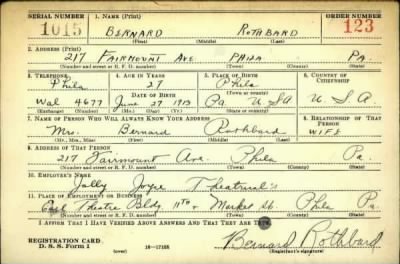 SERIAL NUMBER 1. NAME (Print) ORDER NUMBER
1015 BERNARD ROTHBARD 123
(First) (Middle) (Last)
2. ADDRESS (Print)
217 FAIRMOUNT AVE PHILA PA.
(Number and street or R. F. D. number) (Town) (County) (State)
3. TELEPHONE 4. AGE IN YEARS 5. PLACE OF BIRTH 6. COUNTRY OF CITIZENSHIP
Phila 27 Phila
DATE OF BIRTH (Town or county)
Wal 4677 June 27 1913 Pa. U S A U. S. A.
(Exchange) (Number) (Mo.) (Day) (Yr.) (State or country)
7. NAME OF PERSON WHO WILL ALWAYS KNOW YOUR ADDRESS 8. RELATIONSHIP OF THAT PERSON
Mrs. Bernard Rothbard WIFE
(Mr., Mrs., Miss) (First) (Middle) (Last)
9. ADDRESS OF THAT PERSON
217 Fairmount Ave. Phila Pa.
(Number and street or R. F. D. number) (Town) (County) (State)
10. EMPLOYER'S NAME
Jolly Joyce Theatrical's
11. PLACE OF EMPLOYMENT OR BUSINESS
Earl Theatre Bldg. 11th + Market St. Phila Pa.
(Number and street or R. F. D. number) (Town) (County) (State)
I AFFIRM THAT I HAVE VERIFIED ABOVE ANSWERS AND THAT THEY ARE TRUE.
REGISTRATION CARD
D. S. S. Form 1 (over) 16—17105 Bernard Rothbard
(Registrant's signature)